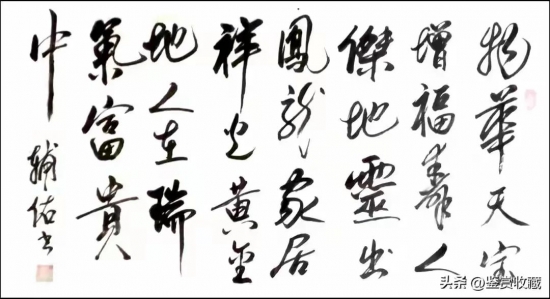 物華天宝
增福壽人
傑地靈出
鳳龍家居
祥光黄金
地人在瑞
氣富貴
中
輔佑书
头条 @鉴赏收藏